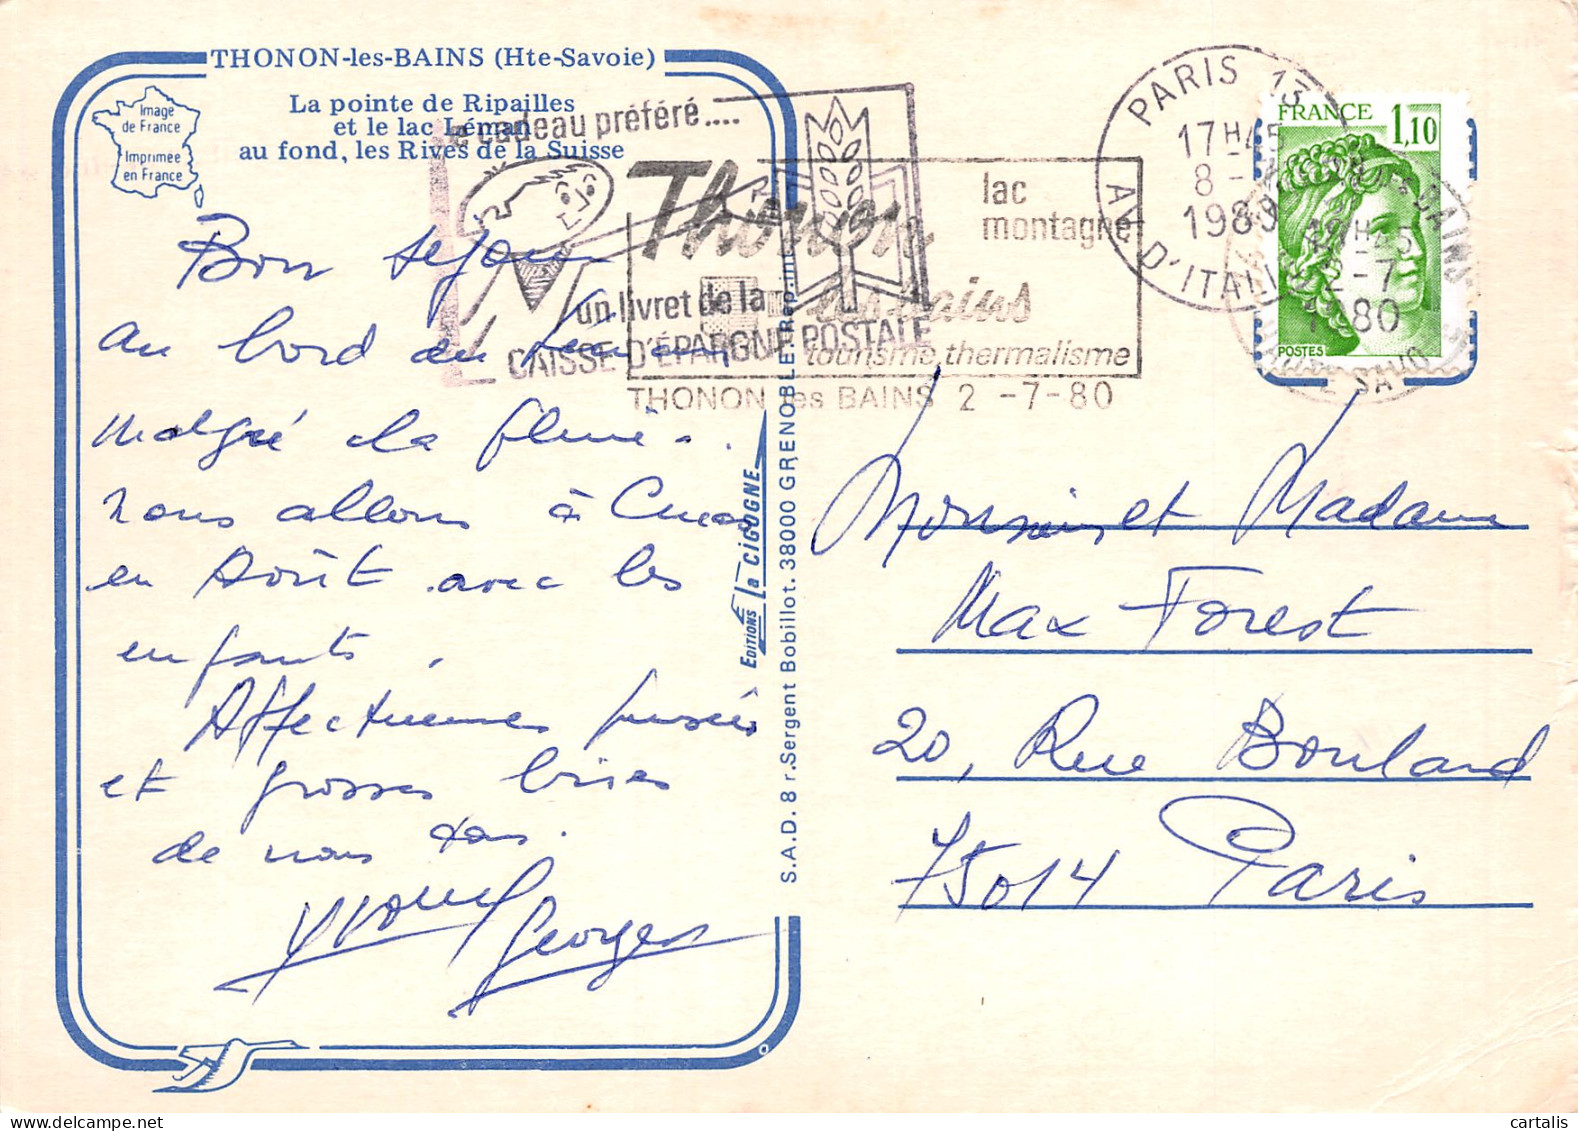 THONON-les-BAINS (Hte-Savoie)
Image
de France
Imprimée
en France
La pointe de Ripailles
et le lac Léman
au fond, les Rives de la Suisse
Bon séjour
au bord du Léman
malgré la pluie..
nous allons à
en Août avec les
enfants.
Affectueuses pensées
et grosses bises
de nous tous.
Yvonne
Georges
EDITIONS la CIGOGNE
S.A.D. 8 r. Sergent Bobillot. 38000 GRENOBLE. Rep. int.
le cadeau préféré....
un livret de la
CAISSE D'ÉPARGNE POSTALE
Thonon
les bains
lac
montagne
tourisme, thermalisme
THONON les BAINS 2 -7-80
PARIS 13
17H45
8 -
1980
AV. D'ITALIE
FRANCE
1,10
POSTES
18H45
2-7
1980
Monsieur et Madame
Max Forest
20, Rue Boulard
75014 Paris
cartalis